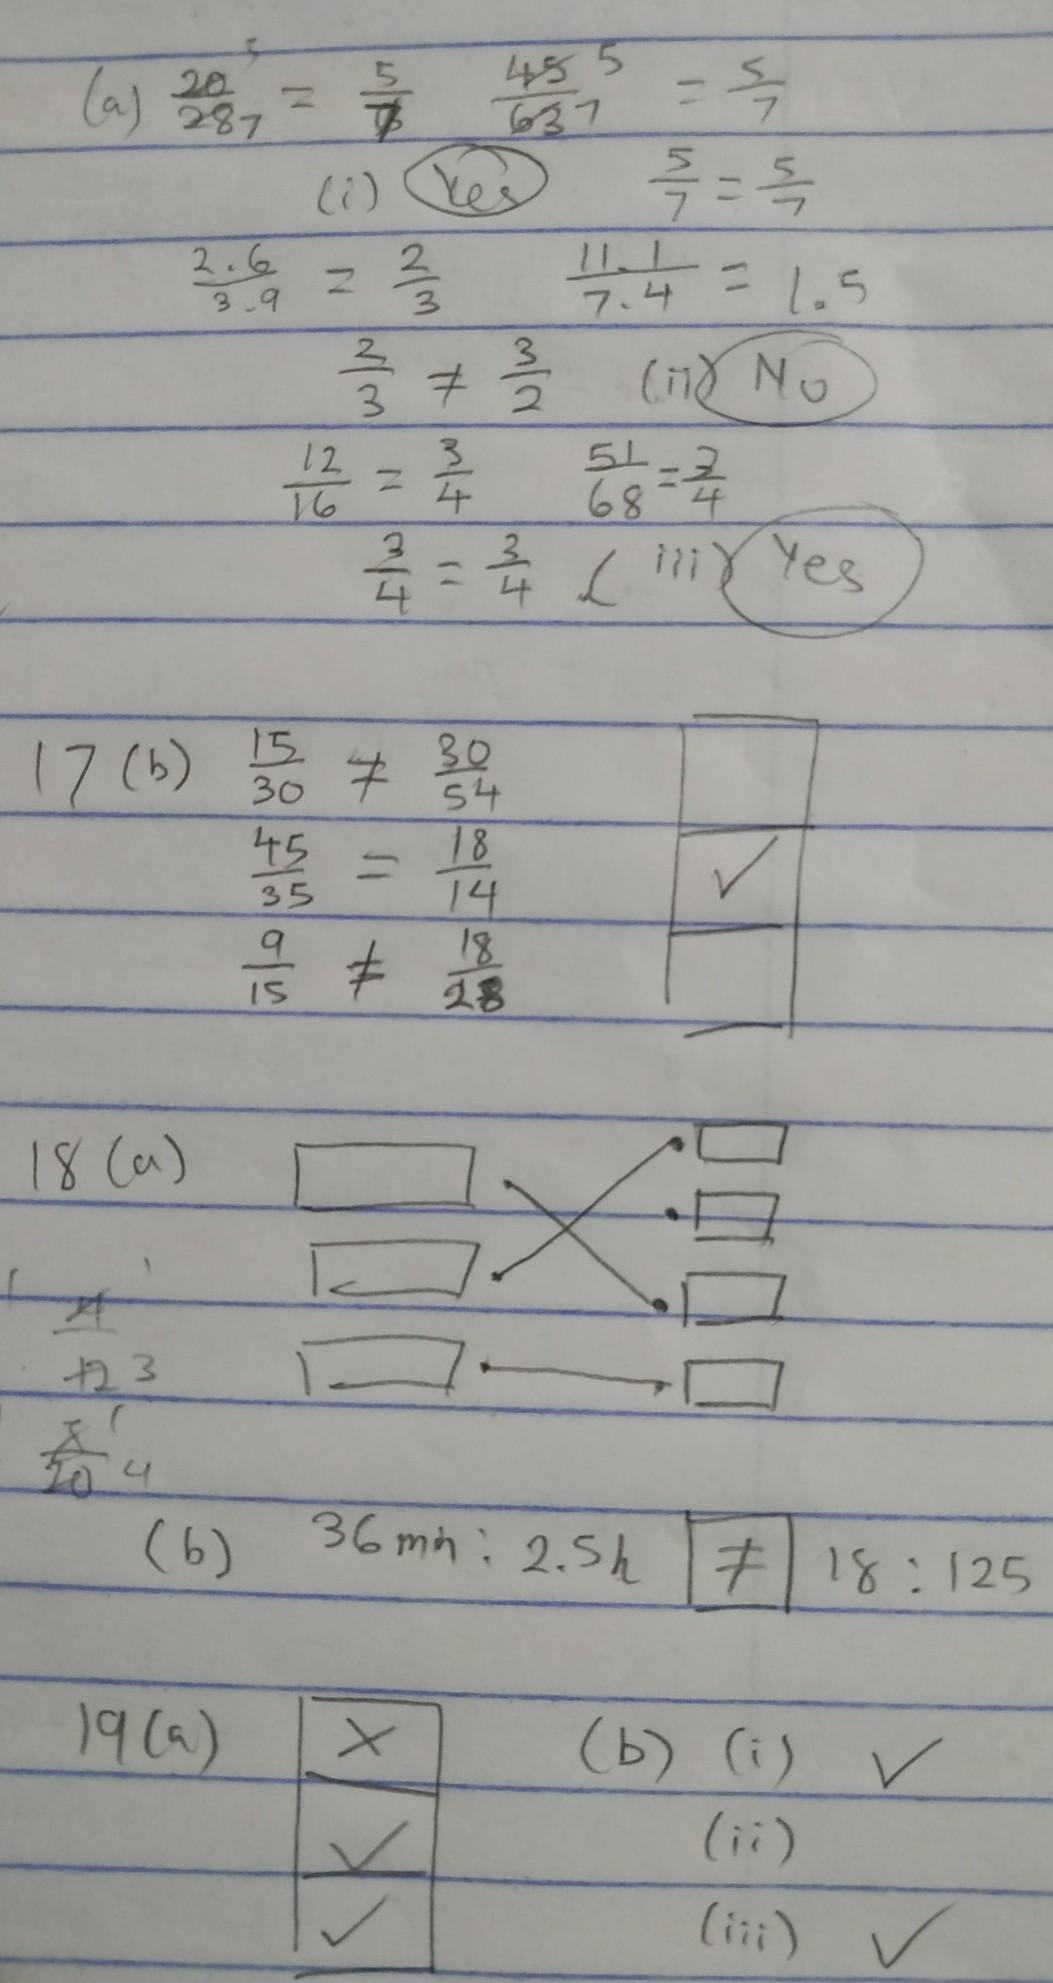 (a) 20/28 5 7 = 5/7 45/63 5 7 = 5/7
(i) Yes 5/7 = 5/7
2.6/3.9 = 2/3 11.1/7.4 = 1.5
2/3 ≠ 3/2 (ii) No
12/16 = 3/4 51/68 = 3/4
3/4 = 3/4 (iii) Yes
17 (b) 15/30 ≠ 30/54
45/35 = 18/14 ✓
9/15 ≠ 18/28
18 (a)
4/12 1 3
5/20 1 4
(b) 36 min : 2.5h ≠ 18 : 125
19 (a) × (b) (i) ✓
✓ (ii)
✓ (iii) ✓